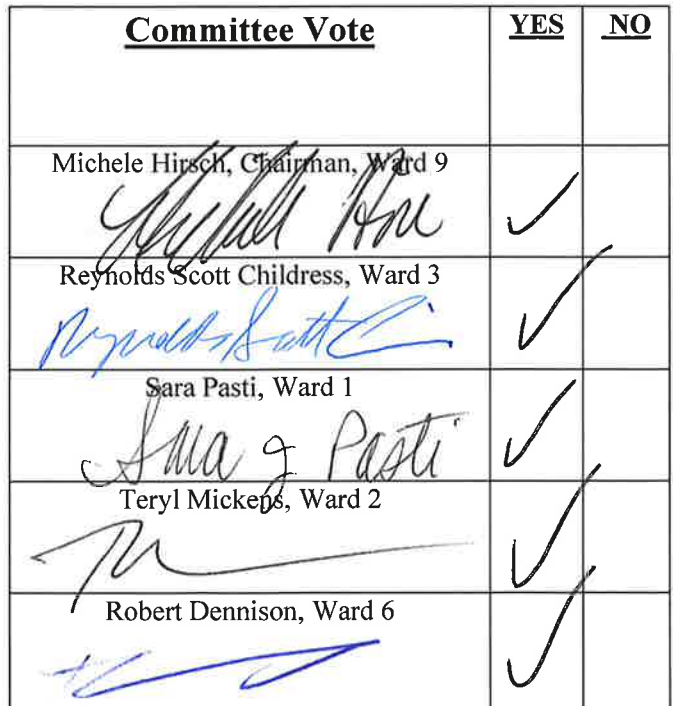 Committee Vote YES NO
Michele Hirsch, Chairman, Ward 9
Reynolds Scott Childress, Ward 3
Reynolds Scott
Sara Pasti, Ward 1
Sara J Pasti
Teryl Mickens, Ward 2
Robert Dennison, Ward 6